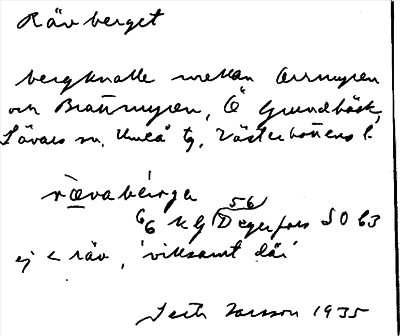 Rävberget
bergknalle mellan Orrmyren
och Brattmyren, Ö Grundbäck,
Sävars sn, Umeå tg, Västerbottens l.
rævabérga
56
66 k G Degerfors SO 63
ej < räv, 'viksamt där'
Seth Larsson 1935